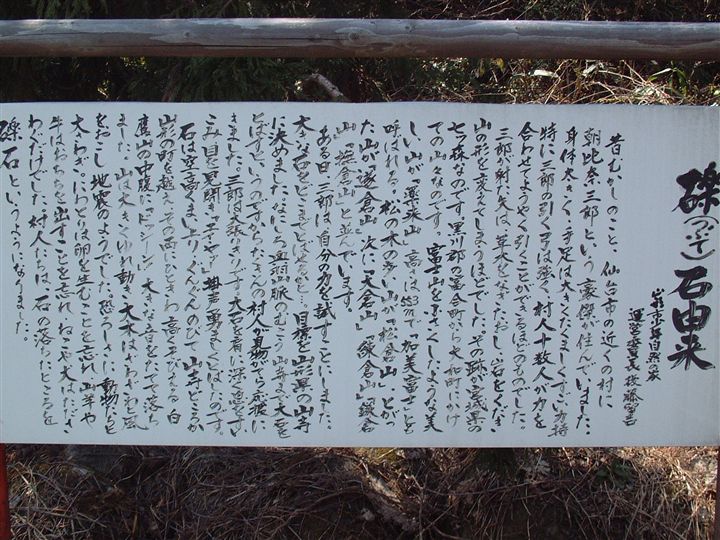 礫(つぶて)石由来
山形市少年自然の家
運営委員長 後藤
昔むかしのこと、仙台市の近くの村に
朝比奈三郎という豪傑が住んでいました。
身体大きく、手足は大きくたくましくすごい力持
特に三郎の引く弓は強く、村人十数人が力を
合わせてようやく引くことができるほどのものでした。
三郎が射た矢は、草木をなぎたおし、岩をくだき
山の形を変えてしまうほどでした。その跡が宮城県の
七つ森なのです。黒川郡の富谷町から大和町にかけ
ての山々なのです。富士山を小さくしたような美
しい山が「薬来山」高さは553mで「加美富士」とも
呼ばれる。松の木の多い山が「松倉山」とがっ
た山が「遂倉山」次に「大倉山」「鎌倉山」「鎌倉
山」「撫倉山」と並んでいます。
ある日三郎は、自分の力を試すことにしました。
大きな石をどこまでとばせるか…目標を山形県の山寺
に決めました。なにしろ奥羽山脈のむこう山寺まで大石を
とばすというのですからたくさんの村人が見物がてら応援に
きました。三郎は張りきりです。大石を肩に深呼吸をすい
こみ目を見開き「エイヤッ」掛声勇ましくとばしたのです。
石は空高くまい上りぐんぐんのびて山寺どころか
山形の町を越え、その西にひときわ高くそびえる白
鷹山の中腹に「ドッツィーン」大きな音をたてて落ち
ました。山は大きくゆれ動き、大木はざわざわと風
をおこし、地震のようでした。恐ろしさに動物たちも
大さわぎ。にわとりは卵を生むことを忘れ、山羊や
牛はおちちを出すことを忘れ、ねこや犬はたださ
わぐだけでした。村人たちは、石の落ちたところを
礫石というようになりました。